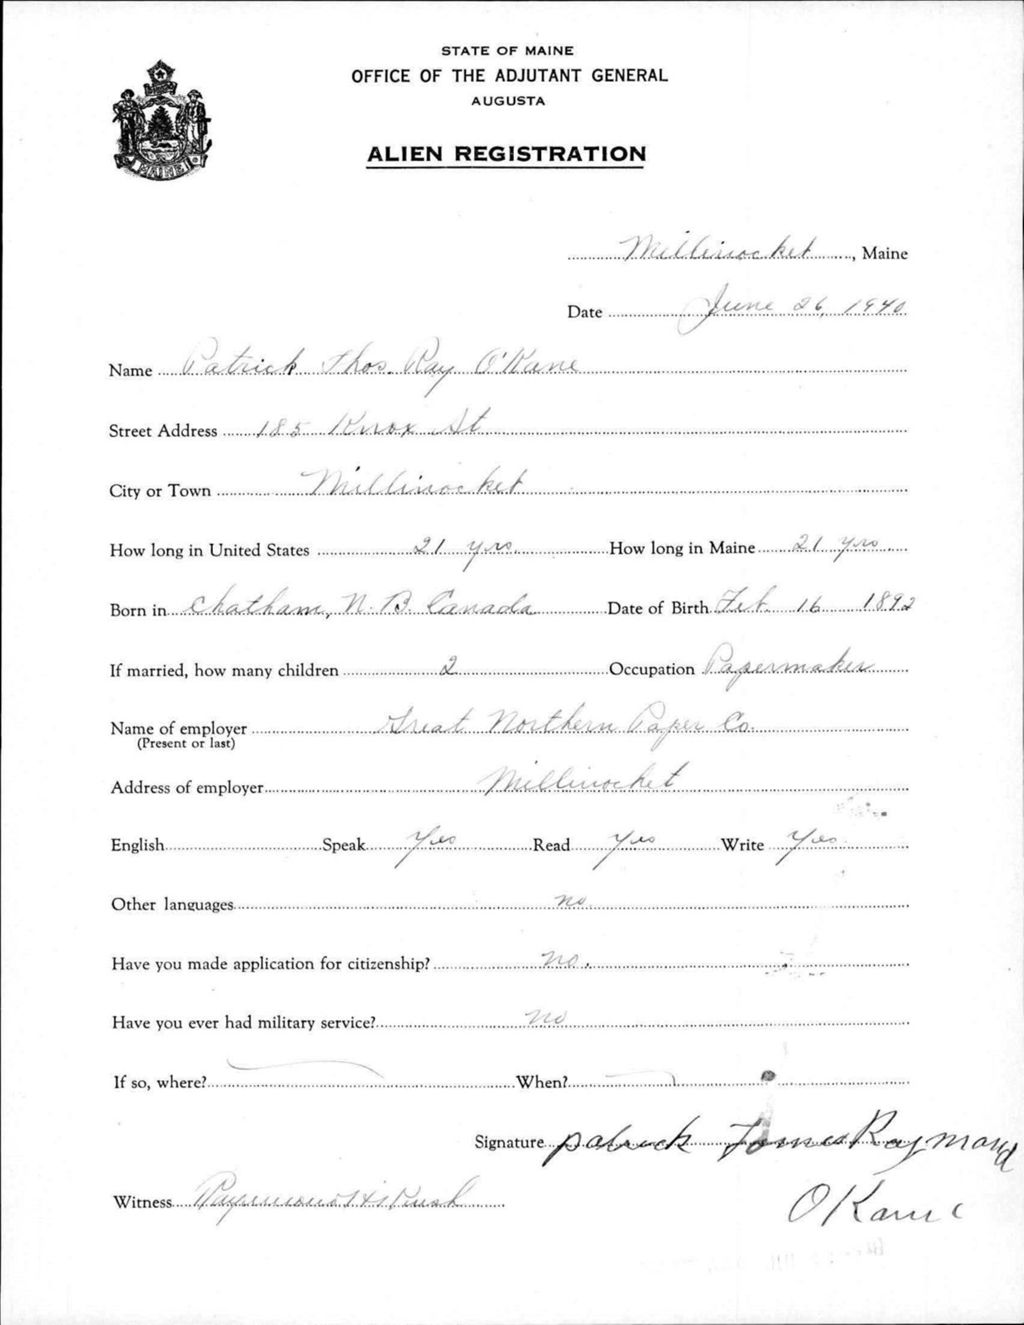 STATE OF MAINE
OFFICE OF THE ADJUTANT GENERAL
AUGUSTA
ALIEN REGISTRATION
MAINE
Millinocket, Maine
Date June 26, 1940
Name Patrick Thos. Ray O'Kane
Street Address 185 Knox St
City or Town Millinocket
How long in United States 21 yrs How long in Maine 21 yrs
Born in Chatham, N.B. Canada Date of Birth Feb 16 1892
If married, how many children 2 Occupation Papermaker
Name of employer Great Northern Paper Co.
(Present or last)
Address of employer Millinocket
English Speak Yes Read Yes Write Yes
Other languages no
Have you made application for citizenship? No.
Have you ever had military service? no
If so, where? When?
Signature Patrick Raymond
O Kane
Witness Rush